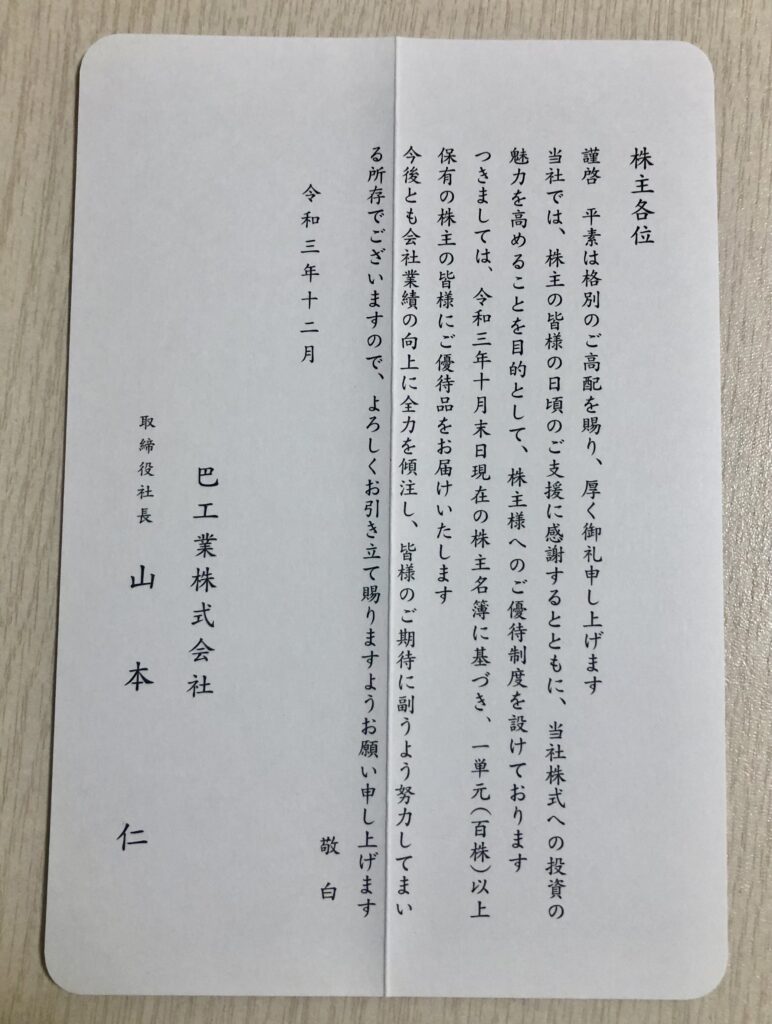 株主各位
謹啓　平素は格別のご高配を賜り、厚く御礼申し上げます
当社では、株主の皆様の日頃のご支援に感謝するとともに、当社株式への投資の
魅力を高めることを目的として、株主様へのご優待制度を設けております
つきましては、令和三年十月末日現在の株主名簿に基づき、一単元（百株）以上
保有の株主の皆様にご優待品をお届けいたします
今後とも会社業績の向上に全力を傾注し、皆様のご期待に副うよう努力してまい
る所存でございますので、よろしくお引き立て賜りますようお願い申し上げます
敬白
令和三年十二月
巴工業株式会社
取締役社長　山本　仁